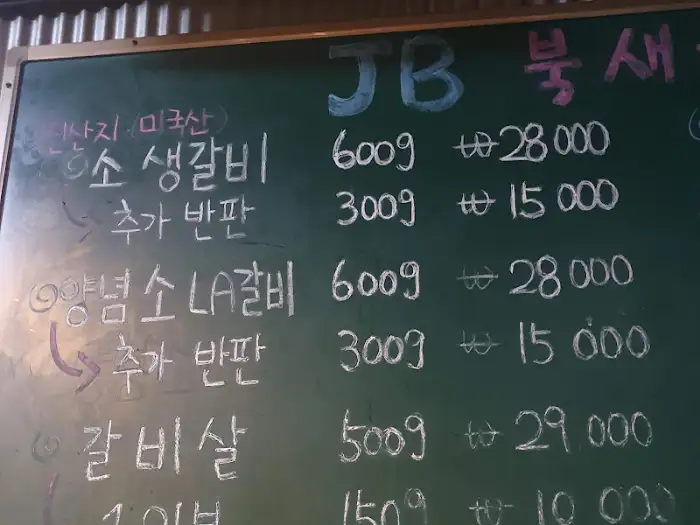 JB 북새
원산지 (미국산)
소 생갈비 600g ₩28000
추가 반판 300g ₩15000
양념소 LA갈비 600g ₩28000
추가 반판 300g ₩15000
갈비살 500g ₩29.000
150g ₩10000